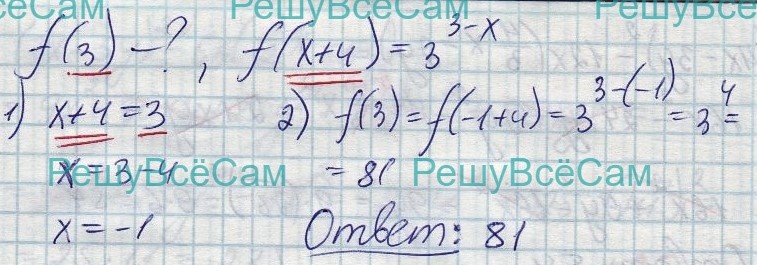 ешуВсёСам РешуВсёСам РешуВсёСам
f(3) - ?, f(x+4) = 3^{3-x}
1) x+4 = 3 2) f(3) = f(-1+4) = 3^{3-(-1)} = 3^4 =
x = 3-4 = 81
РешуВсёСам РешуВсёСам
x = -1 Ответ: 81